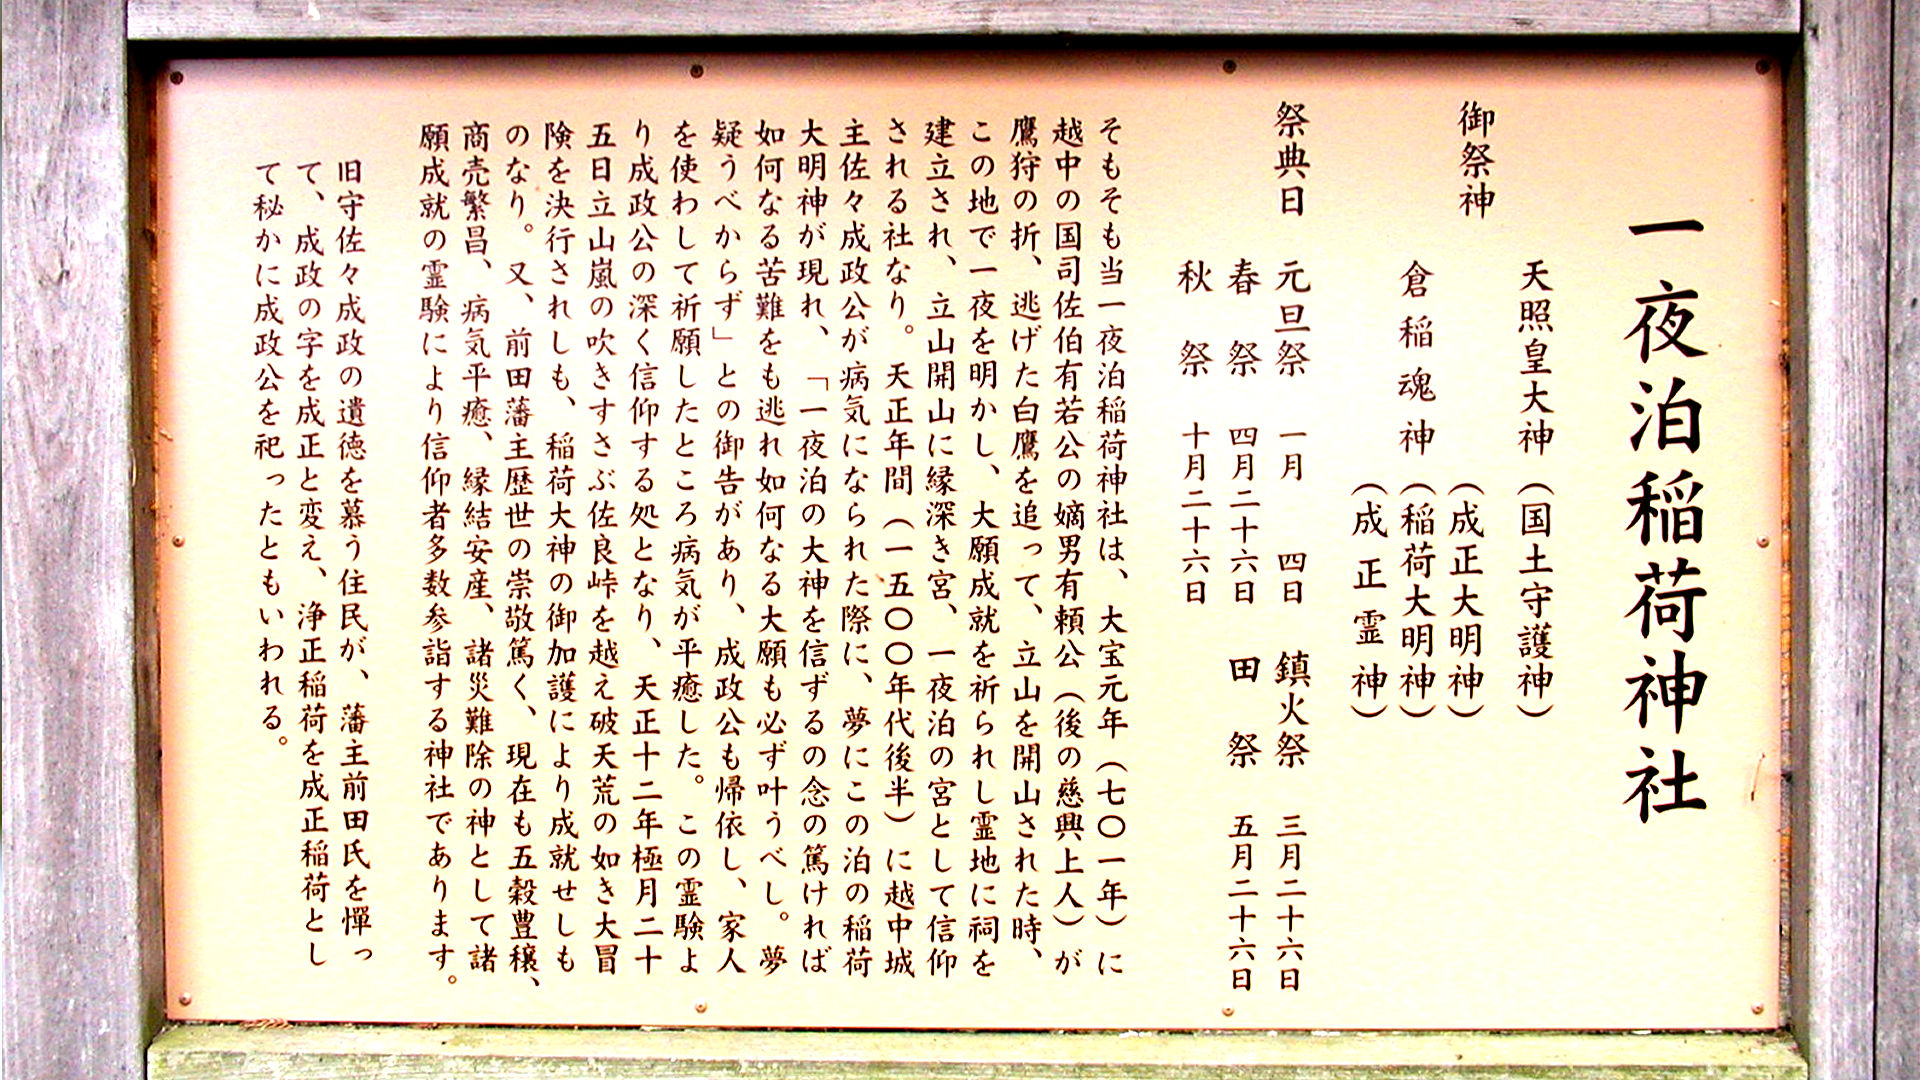 一夜泊稲荷神社
天照皇大神（国土守護神）
御祭神
（成正大明神）
倉稲魂神（稲荷大明神）
（成正霊神）
祭典日 元旦祭 一月 四日 鎮火祭 三月二十六日
春祭 四月二十六日 田祭 五月二十六日
秋祭 十月二十六日
そもそも当一夜泊稲荷神社は、大宝元年（七〇一年）に
越中の国司佐伯有若公の嫡男有頼公（後の慈興上人）が
鷹狩の折、逃げた白鷹を追って、立山を開山された時、
この地で一夜を明かし、大願成就を祈られし霊地に祠を
建立され、立山開山に縁深き宮、一夜泊の宮として信仰
される社なり。天正年間（一五〇〇年代後半）に越中城
主佐々成政公が病気になられた際に、夢にこの泊の稲荷
大明神が現れ、「一夜泊の大神を信ずるの念の篤ければ
如何なる苦難をも逃れ如何なる大願も必ず叶うべし。夢
疑うべからず」との御告があり、成政公も帰依し、家人
を使わして祈願したところ病気が平癒した。この霊験よ
り成政公の深く信仰する処となり、天正十二年極月二十
五日立山嵐の吹きすさぶ佐良峠を越え破天荒の如き大冒
険を決行されしも、稲荷大神の御加護により成就せしも
のなり。又、前田藩主歴世の崇敬篤く、現在も五穀豊穣、
商売繁昌、病気平癒、縁結安産、諸災難除の神として諸
願成就の霊験により信仰者多数参詣する神社であります。
旧守佐々成政の遺徳を慕う住民が、藩主前田氏を憚っ
て、成政の字を成正と変え、浄正稲荷を成正稲荷とし
て秘かに成政公を祀ったともいわれる。